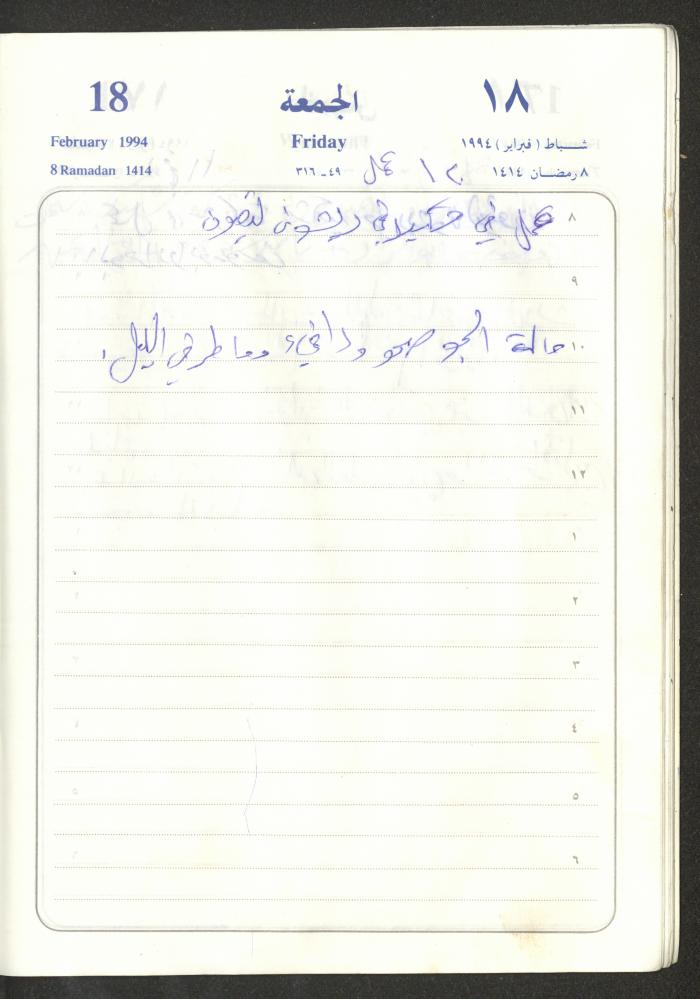 18 الجمعة ١٨
February 1994 Friday شباط (فبراير) ١٩٩٤
8 Ramadan 1414 ٤٩-٣١٦ ٨ رمضان ١٤١٤
عمل
٨ عمل في ريشون لتصيون
٩
١٠ حالة الجو صحو ودافيء وماطر في الليل.
١١
١٢
١
٢
٣
٤
٥
٦